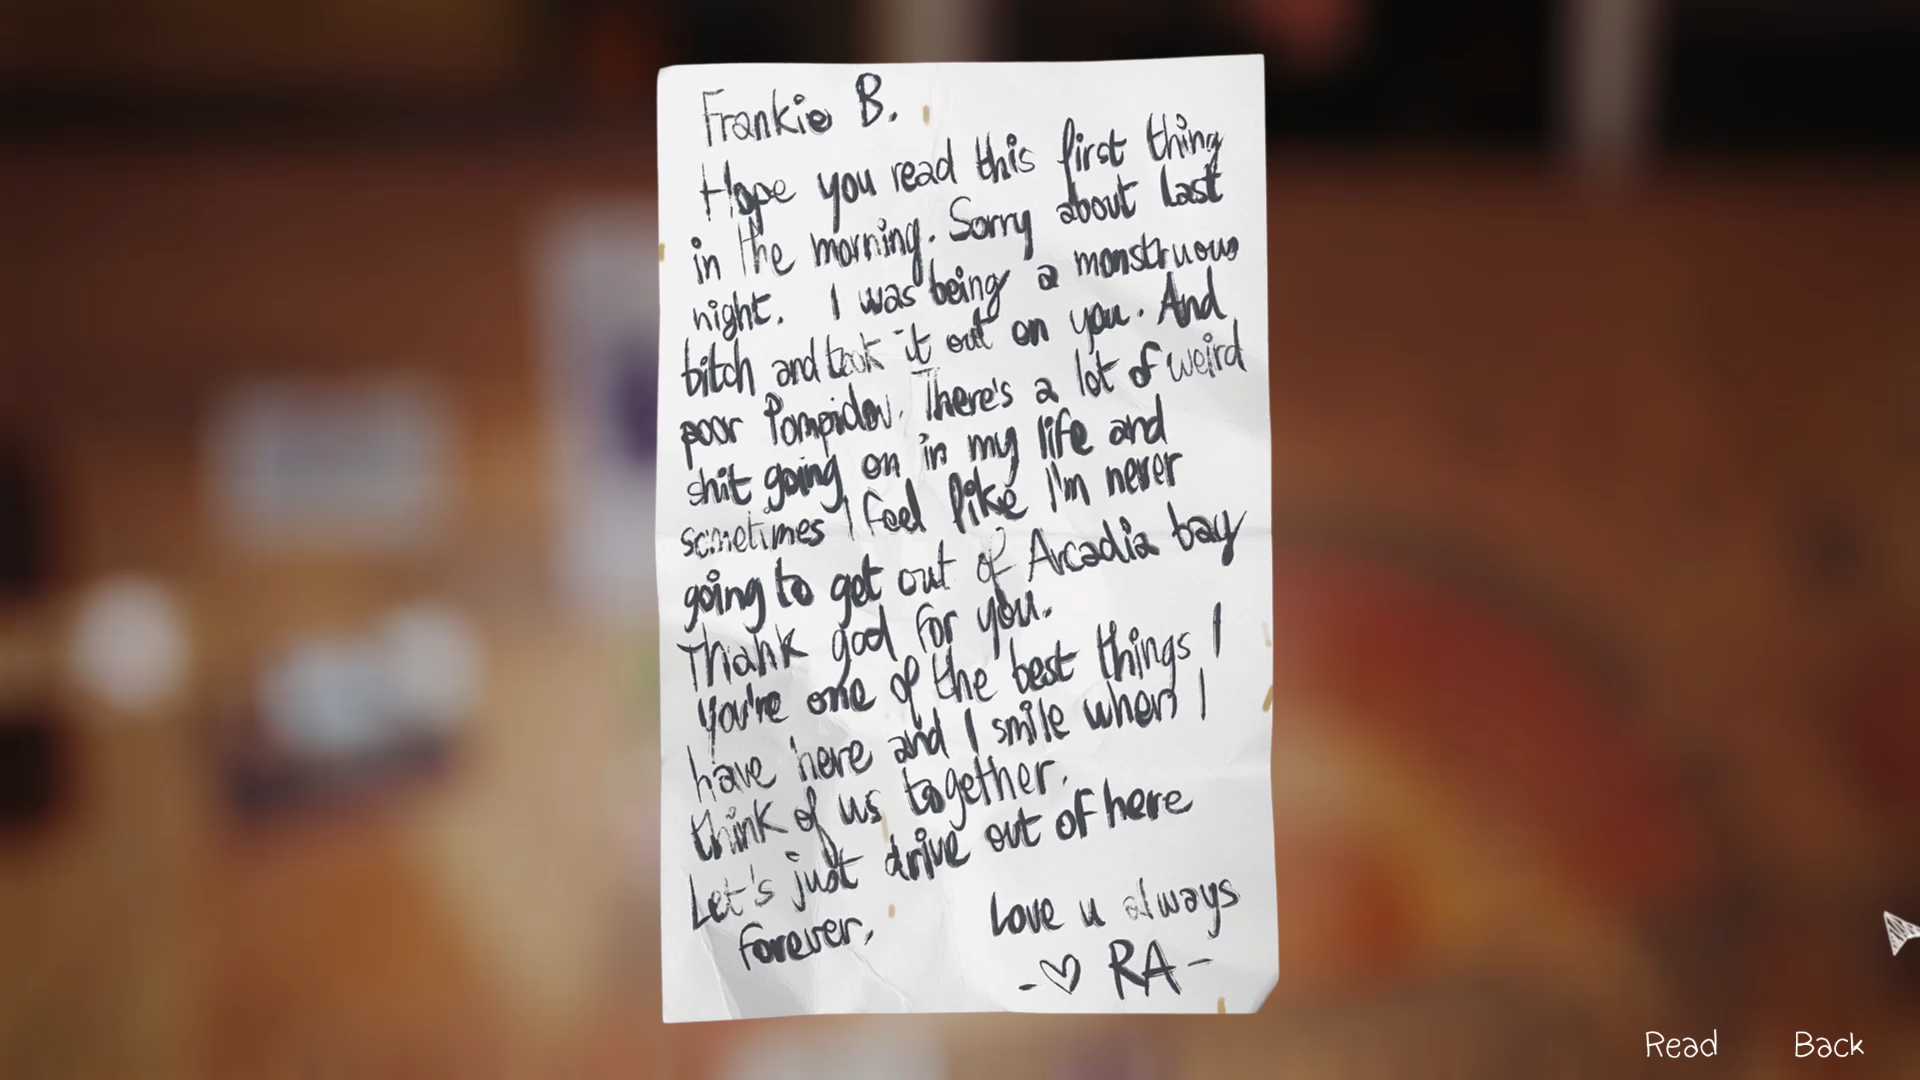 Frankie B.
Hope you read this first thing
in the morning. Sorry about last
night. I was being a monstruous
bitch and took it out on you. And
poor Pompidou. There's a lot of weird
shit going on in my life and
sometimes I feel like I'm never
going to get out of Arcadia bay
Thank god for you.
You're one of the best things I
have here and I smile when I
think of us together.
Let's just drive out of here
forever.
Love u always
-♡ RA-
Read Back